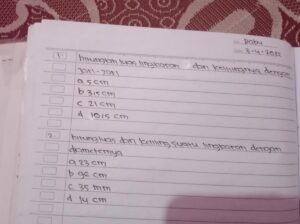 Rabu
1. hitunglah luas lingkaran dan kelilingnya dengan
a 5 cm
b 3,5 cm
c 21 cm
d 10,5 cm
2. hitung luas dan keliling suatu lingkaran dengan
diameternya
a 23 cm
c 35 mm
d 14 cm